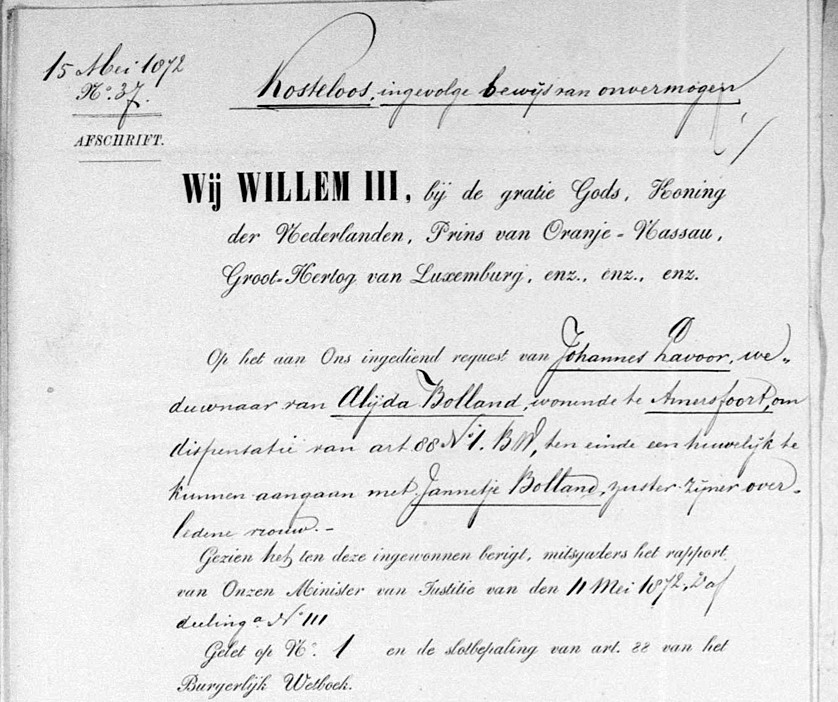 15 Mei 1872
No. 37.
AFSCHRIFT.
Kosteloos, ingevolge bewijs van onvermogen
Wij WILLEM III, bij de gratie Gods, Koning
der Nederlanden, Prins van Oranje-Nassau,
Groot-Hertog van Luxemburg, enz., enz., enz.
Op het aan Ons ingediend request van Johannes Lavoor, we-
duwnaar van Alijda Bolland, wonende te Amersfoort, om
dispensatie van art. 88 No 1. BW, ten einde een huwelijk te
kunnen aangaan met Jannetje Bolland, zuster zijner over-
ledene vrouw.-
Gezien het ten deze ingewonnen berigt, mitsgaders het rapport
van Onzen Minister van Justitie van den 11 Mei 1872, 2 af
deeling a No 111
Gelet op No. 1 en de slotbepaling van art. 88 van het
Burgerlijk Wetboek.